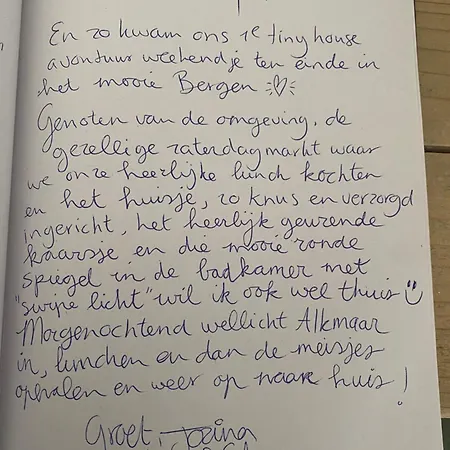 En zo kwam ons 1e tiny house
avontuur weekendje ten einde in
het mooie Bergen
Genoten van de omgeving, de
gezellige zaterdagmarkt waar
we onze heerlijke lunch kochten
en het huisje, zo knus en verzorgd
ingericht, het heerlijk geurende
kaarsje en die mooie ronde
spiegel in de badkamer met
"swipe licht" wil ik ook wel thuis
Morgenochtend wellicht Alkmaar
in, lunchen en dan de meisjes
ophalen en weer op naar huis!
Groet,